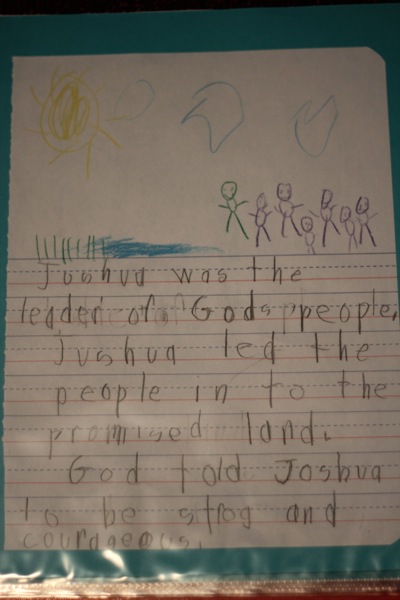 Joshua was the
leader of Gods people.
Joshua led the
people in to the
promised land.
God told Joshua
to be strog and
courageous.